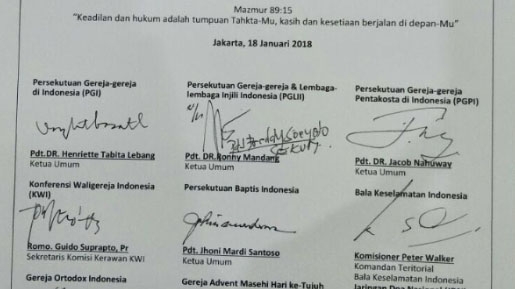 Mazmur 89:15
"Keadilan dan hukum adalah tumpuan Tahkta-Mu, kasih dan kesetiaan berjalan di depan-Mu"
Jakarta, 18 Januari 2018
Persekutuan Gereja-gereja
di Indonesia (PGI)
Pdt.DR. Henriette Tabita Lebang
Ketua Umum
Persekutuan Gereja-gereja & Lembaga-
lembaga Injili Indonesia (PGLII)
Pdt. DR.Ronny Mandang
Ketua Umum
Persekutuan Gereja-gereja
Pentakosta di Indonesia (PGPI)
Pdt. DR. Jacob Nahuway
Ketua Umum
Konferensi Waligereja Indonesia
(KWI)
Romo. Guido Suprapto, Pr
Sekretaris Komisi Kerawan KWI
Persekutuan Baptis Indonesia
Pdt. Jhoni Mardi Santoso
Ketua Umum
Bala Keselamatan Indonesia
Komisioner Peter Walker
Komandan Teritorial
Bala Keselamatan Indonesia
Gereja Ortodox Indonesia
Gereja Advent Masehi Hari ke-Tujuh